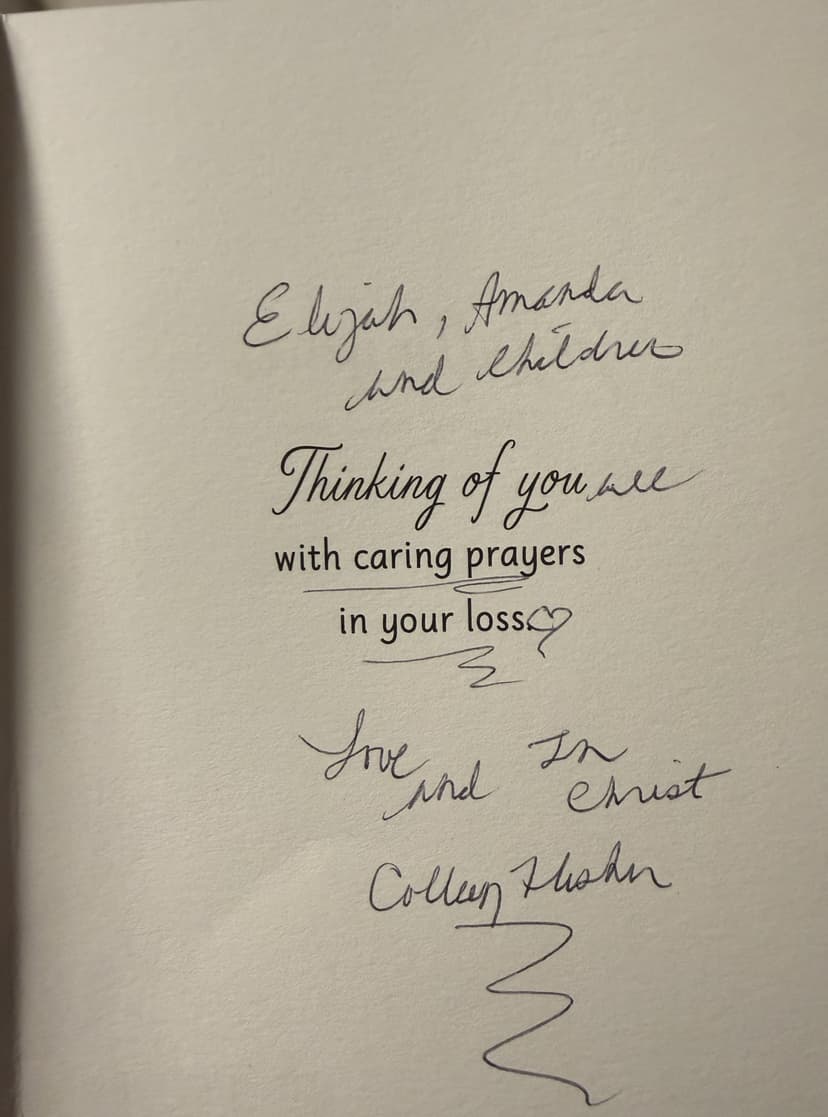 Elijah, Amanda
and Children
Thinking of you all
with caring prayers
in your loss.
Love and In Christ
Colleen